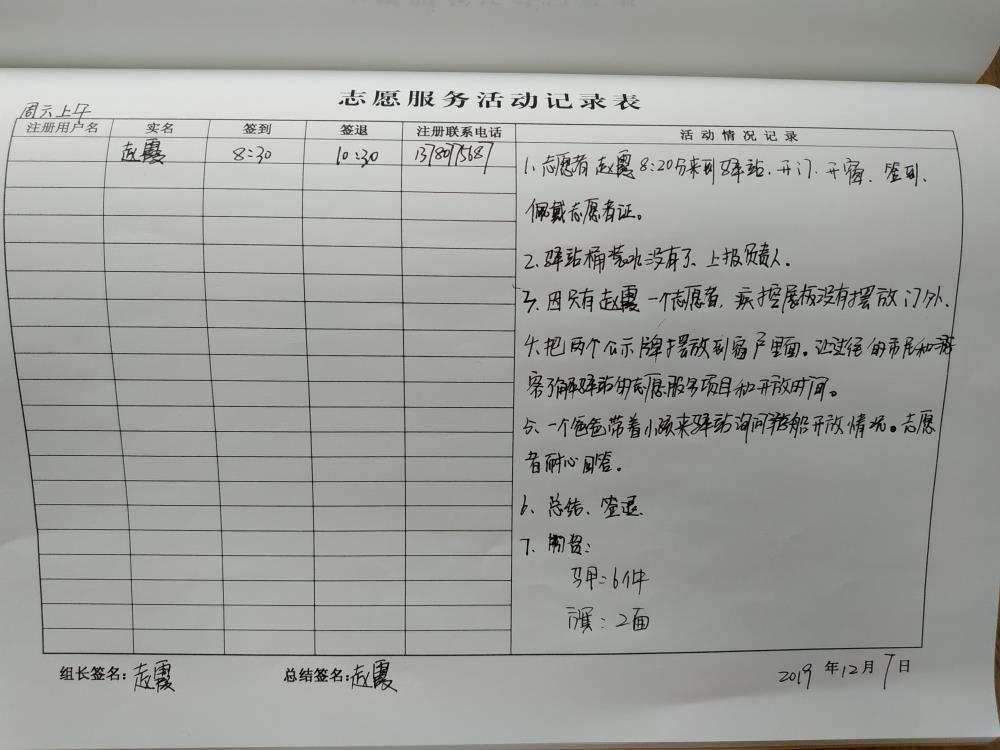 志愿服务活动记录表
周六上午
注册用户名 实名 签到 签退 注册联系电话 活动情况记录
赵霞 8:30 10:30
1、志愿者赵霞8:20分来到驿站、开门、开窗、签到、
佩戴志愿者证。
2、驿站桶装水没有了、上报负责人。
3、因只有赵霞一个志愿者,疾控展板没有摆放门外、
4、把两个公示牌摆放到窗户里面。让过往的市民和游
客了解驿站的志愿服务项目和开放时间。
5、一个爸爸带着小孩来驿站询问游船开放情况。志愿
者耐心回答。
6、总结、签退
7、物资:
马甲:6件
旗:2面
组长签名:赵霞 总结签名:赵霞 2019年12月7日